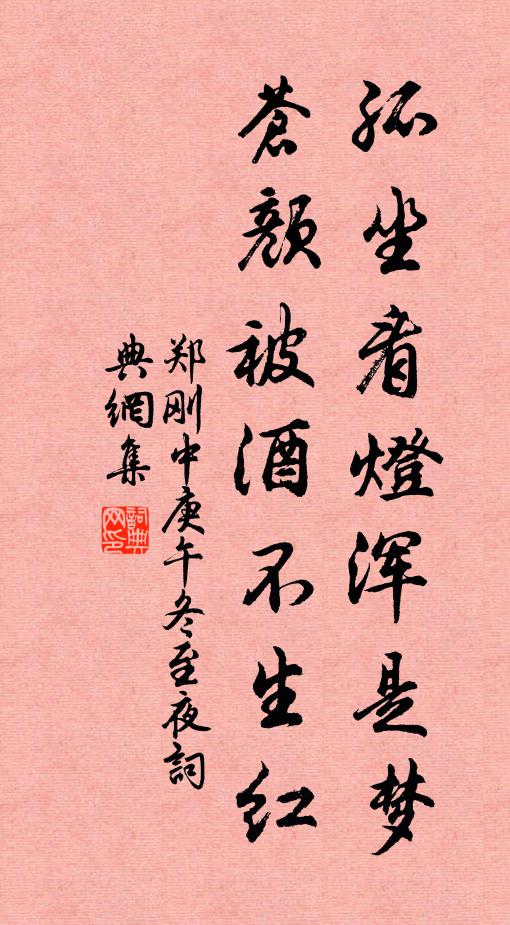 孤坐看燈浑是梦
蒼颜被酒不生红
郑刚中庚午冬至夜詞
典網集
詞典网印